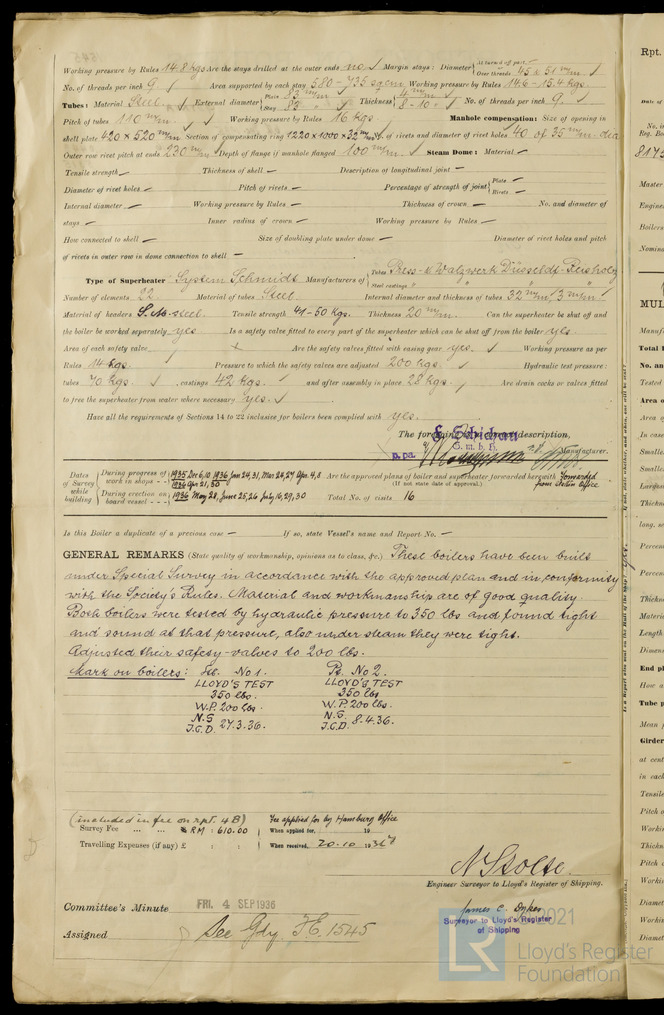 Working pressure by Rules 14.8 kgs Are the stays drilled at the outer ends no Margin stays: Diameter { At turned off part — Over threads 45 & 51 m/m
No. of threads per inch 9 Area supported by each stay 580 – 735 sq cm Working pressure by Rules 14.6 – 15.4 kgs
Tubes: Material Steel External diameter { Plain 83 m/m Stay 83 " Thickness { 4 m/m 8 - 10 " No. of threads per inch 9
Pitch of tubes 110 m/m Working pressure by Rules 16 kgs. Manhole compensation: Size of opening in
shell plate 420 x 520 m/m Section of compensating ring 1220 x 1000 x 32 m/m No. of rivets and diameter of rivet holes 40 of 35 m/m dia
Outer row rivet pitch at ends 230 m/m Depth of flange if manhole flanged 100 m/m. Steam Dome: Material —
Tensile strength — Thickness of shell — Description of longitudinal joint —
Diameter of rivet holes — Pitch of rivets — Percentage of strength of joint { Plate — Rivets —
Internal diameter — Working pressure by Rules — Thickness of crown — No. and diameter of
stays — Inner radius of crown — Working pressure by Rules —
How connected to shell — Size of doubling plate under dome — Diameter of rivet holes and pitch
of rivets in outer row in dome connection to shell —
Type of Superheater System Schmidt Manufacturers of { Tubes Press- u Walzwerk Düsseldf-Reisholz Steel castings " " "
Number of elements 22 Material of tubes Steel Internal diameter and thickness of tubes 32 m/m, 3 m/m
Material of headers S.M. steel Tensile strength 41-50 kgs. Thickness 20 m/m. Can the superheater be shut off and
the boiler be worked separately yes Is a safety valve fitted to every part of the superheater which can be shut off from the boiler yes.
Area of each safety valve Are the safety valves fitted with easing gear yes. Working pressure as per
Rules 14 kgs. Pressure to which the safety valves are adjusted 200 kgs. Hydraulic test pressure:
tubes 70 kgs. castings 42 kgs. and after assembly in place 28 kgs. Are drain cocks or valves fitted
to free the superheater from water where necessary yes.
Have all the requirements of Sections 14 to 22 inclusive for boilers been complied with yes.
The foregoing is a correct description,
F. Schichau
G.m.b.H.
p.pa. Manufacturer.
Dates of Survey while building { During progress of work in shops - - 1935 Dec 6, 10 1936 Jan 24, 31, Mar 24, 27 Apr. 4, 8 1936 Apr 21, 30 Are the approved plans of boiler and superheater forwarded herewith Forwarded from Stettin Office
(If not state date of approval.)
During erection on board vessel - - - 1936 May 28, June 25, 26 July 16, 29, 30 Total No. of visits 16
Is this Boiler a duplicate of a previous case — If so, state Vessel's name and Report No. —
GENERAL REMARKS (State quality of workmanship, opinions as to class, &c.) These boilers have been built
under Special Survey in accordance with the approved plan and in conformity
with the Society's Rules. Material and workmanship are of good quality.
Both boilers were tested by hydraulic pressure to 350 lbs and found tight
and sound at that pressure, also under steam they were tight.
Adjusted their safety-valves to 200 lbs.
Mark on boilers: No 1. No 2.
LLOYD'S TEST LLOYD'S TEST
350 lbs. 350 lbs.
W.P. 200 lbs. W.P. 200 lbs.
N.S. N.S.
J.C.D. 27.3.36. J.C.D. 8.4.36.
(included in fee on rpt. 4B) Fee applied for by Hamburg Office
Survey Fee ... ... RM : 610.00 When applied for, 19
Travelling Expenses (if any) £ : : When received, 20.10 1936
N Stolte.
Engineer Surveyor to Lloyd's Register of Shipping.
Committee's Minute FRI. 4 SEP 1936
James C.
Surveyor to Lloyd's Register
of Shipping
Assigned See Gdy. F.E. 1545
2021
LR Lloyd's Register
Foundation
Rpt.
8175
Master
Engine
Boilers
MUL
Total
No. an
Tested
Area o
In case
Smalle
Smalle
Larges
Thickn
long. s
Percen
Percen
Thickn
Materi
Length
Dimens
End pl
How a
Tube p
Mean p
Girder
at cent
in each
Tensile
Pitch o
Worki
Thickn
Pitch o
Workin
Diamet
Workin
Diamet